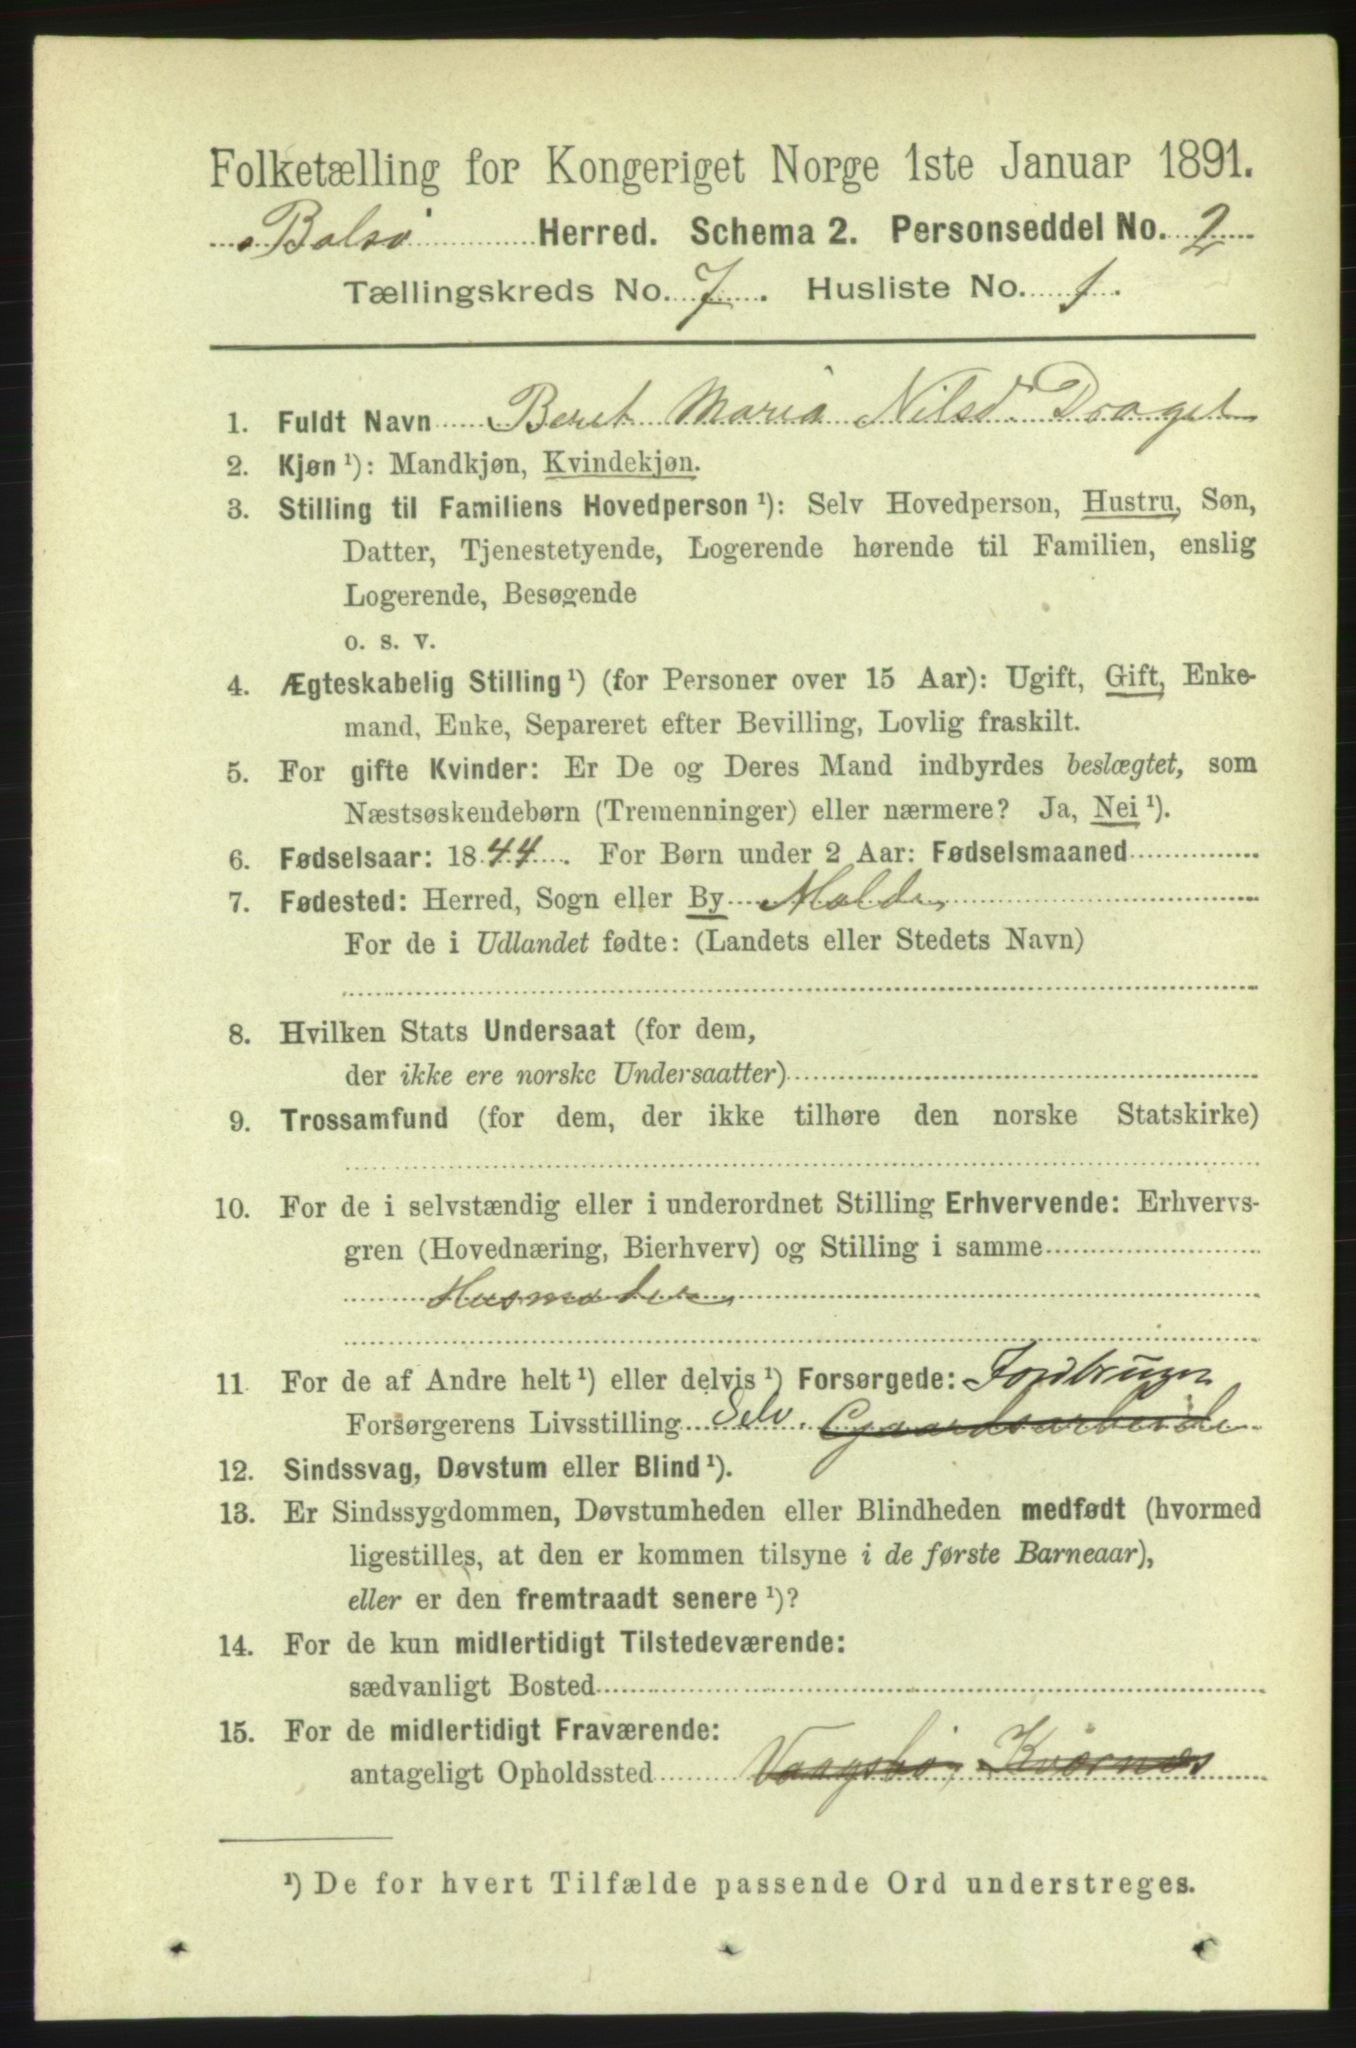 Folketælling for Kongeriget Norge 1ste Januar 1891.
Bolsø Herred. Schema 2. Personseddel No. 2
Tællingskreds No. 7. Husliste No. 1.
1. Fuldt Navn Beret Maria Nilsd. Draget
2. Kjøn ¹): Mandkjøn, Kvindekjøn.
3. Stilling til Familiens Hovedperson ¹): Selv Hovedperson, Hustru, Søn,
Datter, Tjenestetyende, Logerende hørende til Familien, enslig
Logerende, Besøgende
o. s. v.
4. Ægteskabelig Stilling ¹) (for Personer over 15 Aar): Ugift, Gift, Enke-
mand, Enke, Separeret efter Bevilling, Lovlig fraskilt.
5. For gifte Kvinder: Er De og Deres Mand indbyrdes beslægtet, som
Næstsøskendebørn (Tremenninger) eller nærmere? Ja, Nei ¹).
6. Fødselsaar: 1844. For Børn under 2 Aar: Fødselsmaaned
7. Fødested: Herred, Sogn eller By Molde
For de i Udlandet fødte: (Landets eller Stedets Navn)
8. Hvilken Stats Undersaat (for dem,
der ikke ere norske Undersaatter)
9. Trossamfund (for dem, der ikke tilhøre den norske Statskirke)
10. For de i selvstændig eller i underordnet Stilling Erhvervende: Erhvervs-
gren (Hovednæring, Bierhverv) og Stilling i samme
Husmoder
11. For de af Andre helt ¹) eller delvis ¹) Forsørgede: Jordbruger
Forsørgerens Livsstilling Selv. Gaardsarbeide
12. Sindssvag, Døvstum eller Blind ¹).
13. Er Sindssygdommen, Døvstumheden eller Blindheden medfødt (hvormed
ligestilles, at den er kommen tilsyne i de første Barneaar),
eller er den fremtraadt senere ¹)?
14. For de kun midlertidigt Tilstedeværende:
sædvanligt Bosted
15. For de midlertidigt Fraværende:
antageligt Opholdssted Vaagsbø, Kværnes
¹) De for hvert Tilfælde passende Ord understreges.